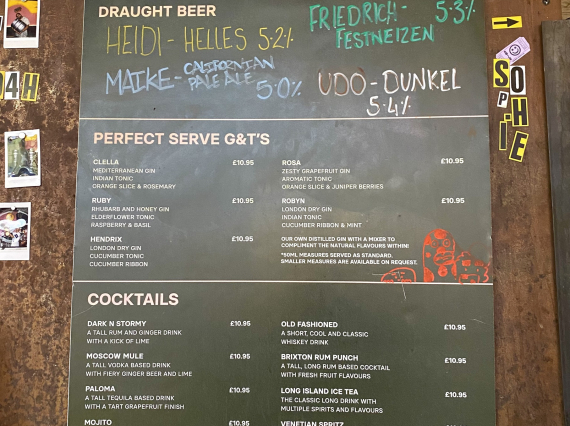 DRAUGHT BEER
HEIDI - HELLES 5.2%
FRIEDRICH- 5.3%
FESTNEIZEN
MAIKE - CALIFORNIAN
PALE ALE 5.0%
UDO - DUNKEL
5.4%
PERFECT SERVE G&T'S
CLELLA £10.95
MEDITERRANEAN GIN
INDIAN TONIC
ORANGE SLICE & ROSEMARY
RUBY £10.95
RHUBARB AND HONEY GIN
ELDERFLOWER TONIC
RASPBERRY & BASIL
HENDRIX £10.95
LONDON DRY GIN
CUCUMBER TONIC
CUCUMBER RIBBON
ROSA £10.95
ZESTY GRAPEFRUIT GIN
AROMATIC TONIC
ORANGE SLICE & JUNIPER BERRIES
ROBYN £10.95
LONDON DRY GIN
INDIAN TONIC
CUCUMBER RIBBON & MINT
OUR OWN DISTILLED GIN WITH A MIXER TO
COMPLIMENT THE NATURAL FLAVOURS WITHIN!
*50ML MEASURES SERVED AS STANDARD.
SMALLER MEASURES ARE AVAILABLE ON REQUEST.
COCKTAILS
DARK N STORMY £10.95
A TALL RUM AND GINGER DRINK
WITH A KICK OF LIME
MOSCOW MULE £10.95
A TALL VODKA BASED DRINK
WITH FIERY GINGER BEER AND LIME
PALOMA £10.95
A TALL TEQUILA BASED DRINK
WITH A TART GRAPEFRUIT FINISH
MOJITO £10.95
OLD FASHIONED £10.95
A SHORT, COOL AND CLASSIC
WHISKEY DRINK
BRIXTON RUM PUNCH £10.95
A TALL, LONG RUM BASED COCKTAIL
WITH FRESH FRUIT FLAVOURS
LONG ISLAND ICE TEA £10.95
THE CLASSIC LONG DRINK WITH
MULTIPLE SPIRITS AND FLAVOURS
VENETIAN SPRITZ £10.95
04H
SOPHIE